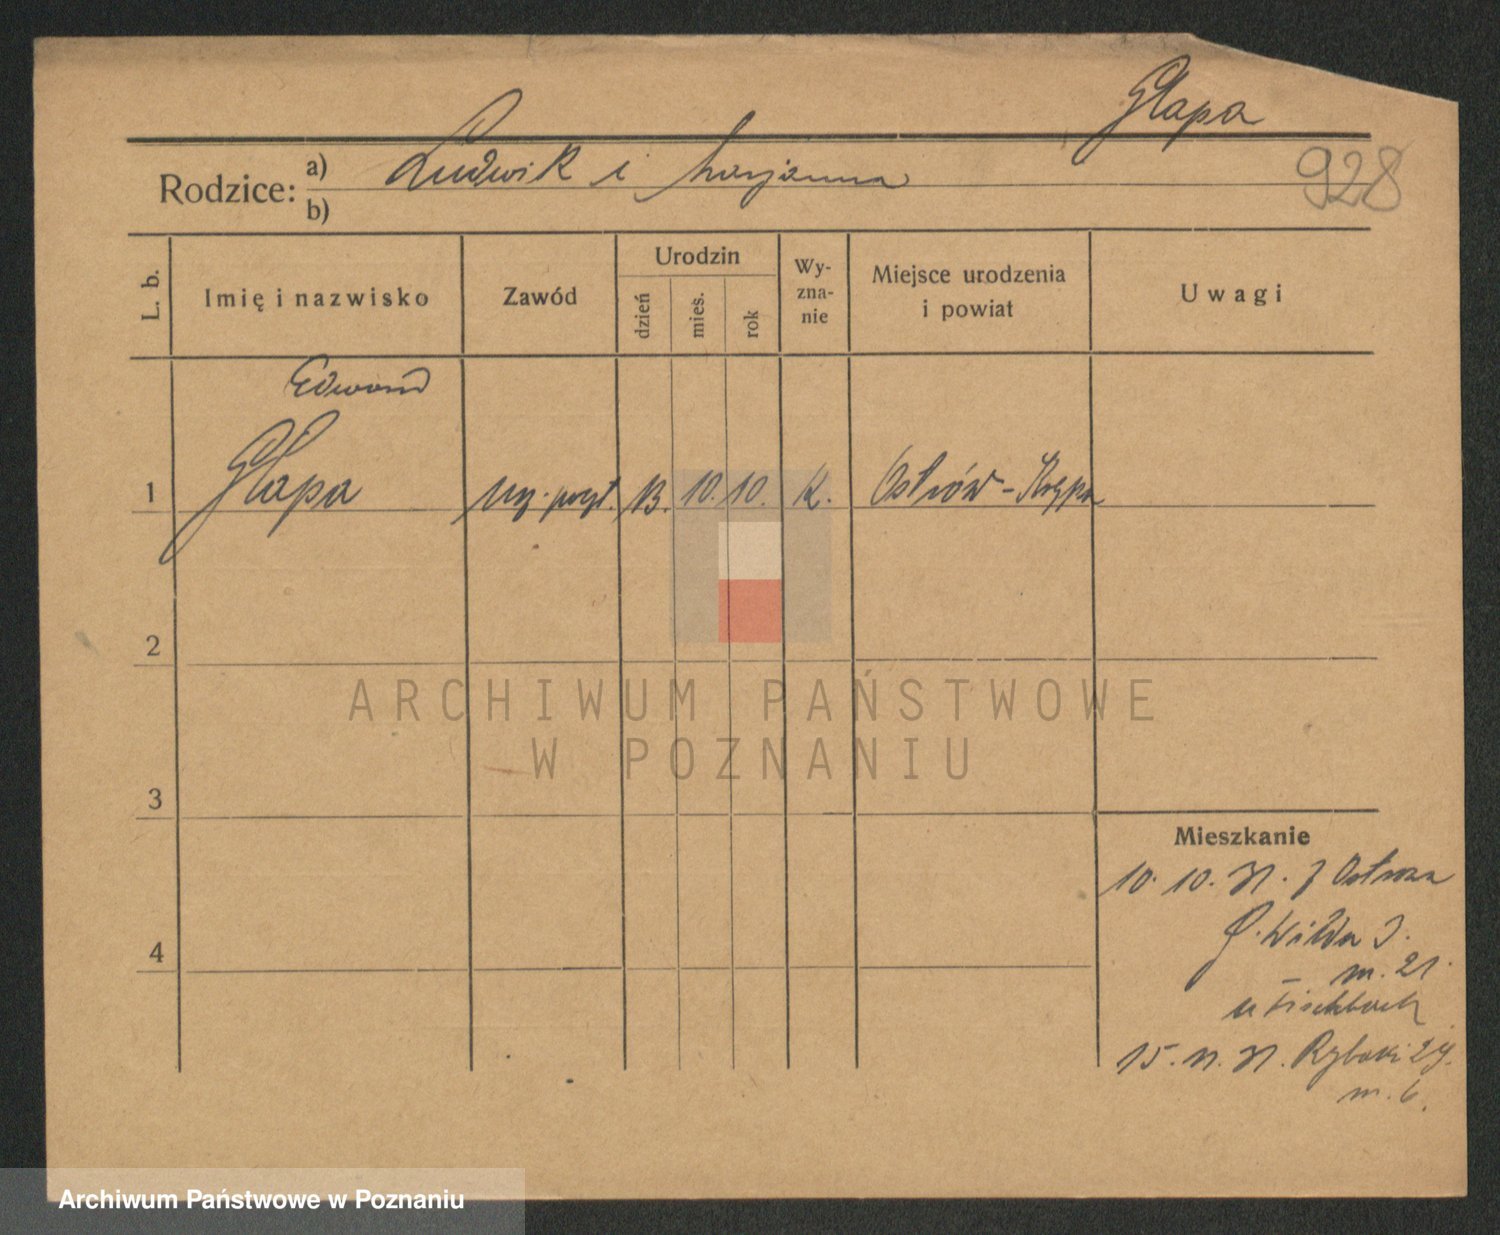 Glapa
928
Rodzice: a) Ludwik i Marjanna
b)
L. b.
Imię i nazwisko
Zawód
Urodzin
dzień
mies.
rok
Wy-
zna-
nie
Miejsce urodzenia
i powiat
Uwagi
Edward
1 Glapa 13. 10. 10. K. Ostrów - Krępa
2
3
4
Mieszkanie
10. 10. 31. z Ostrowa
G. Wilda 3.
m. 21.
u Fischbach
15. 11. 31. Rybaki 24.
m. 6.
ARCHIWUM PAŃSTWOWE
W POZNANIU
Archiwum Państwowe w Poznaniu